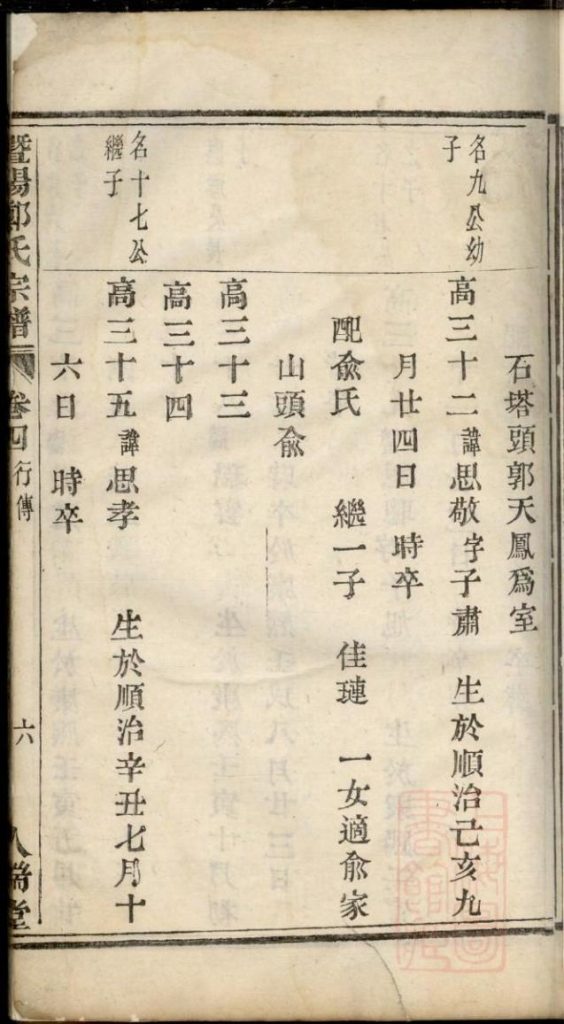 石塔頭郭天鳳爲室
名九公幼
子
高三十二諱思敬字子肅 生於順治己亥九
月廿四日 時卒
配俞氏 繼一子 佳璉 一女適俞家
山頭俞
高三十三
高三十四
名十七公
繼子
高三十五諱思孝 生於順治辛丑七月十
六日 時卒
暨陽郭氏宗譜 卷四 行傳 六 人瑞堂